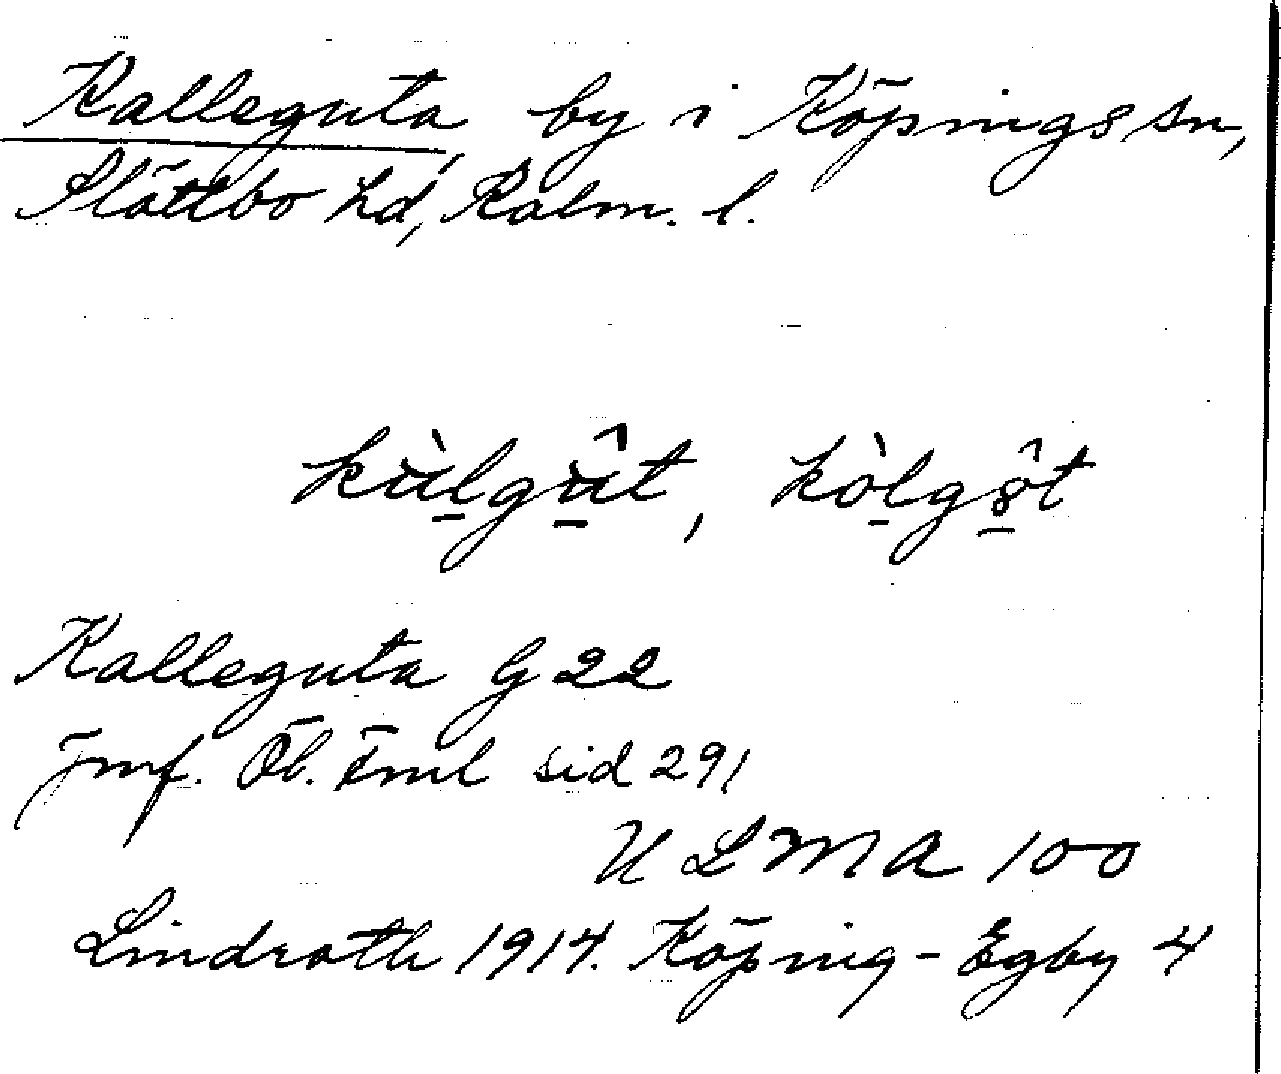 Kalleguta, by i Köpings sn,
Slättbo hd, Kalm. l.
kùl̠gû̠t, kòl̠gô̠t
Kalleguta G 22
Jmf. Öl. Fml sid 291
ULMA 100
Lindroth 1914. Köping - Egby 4